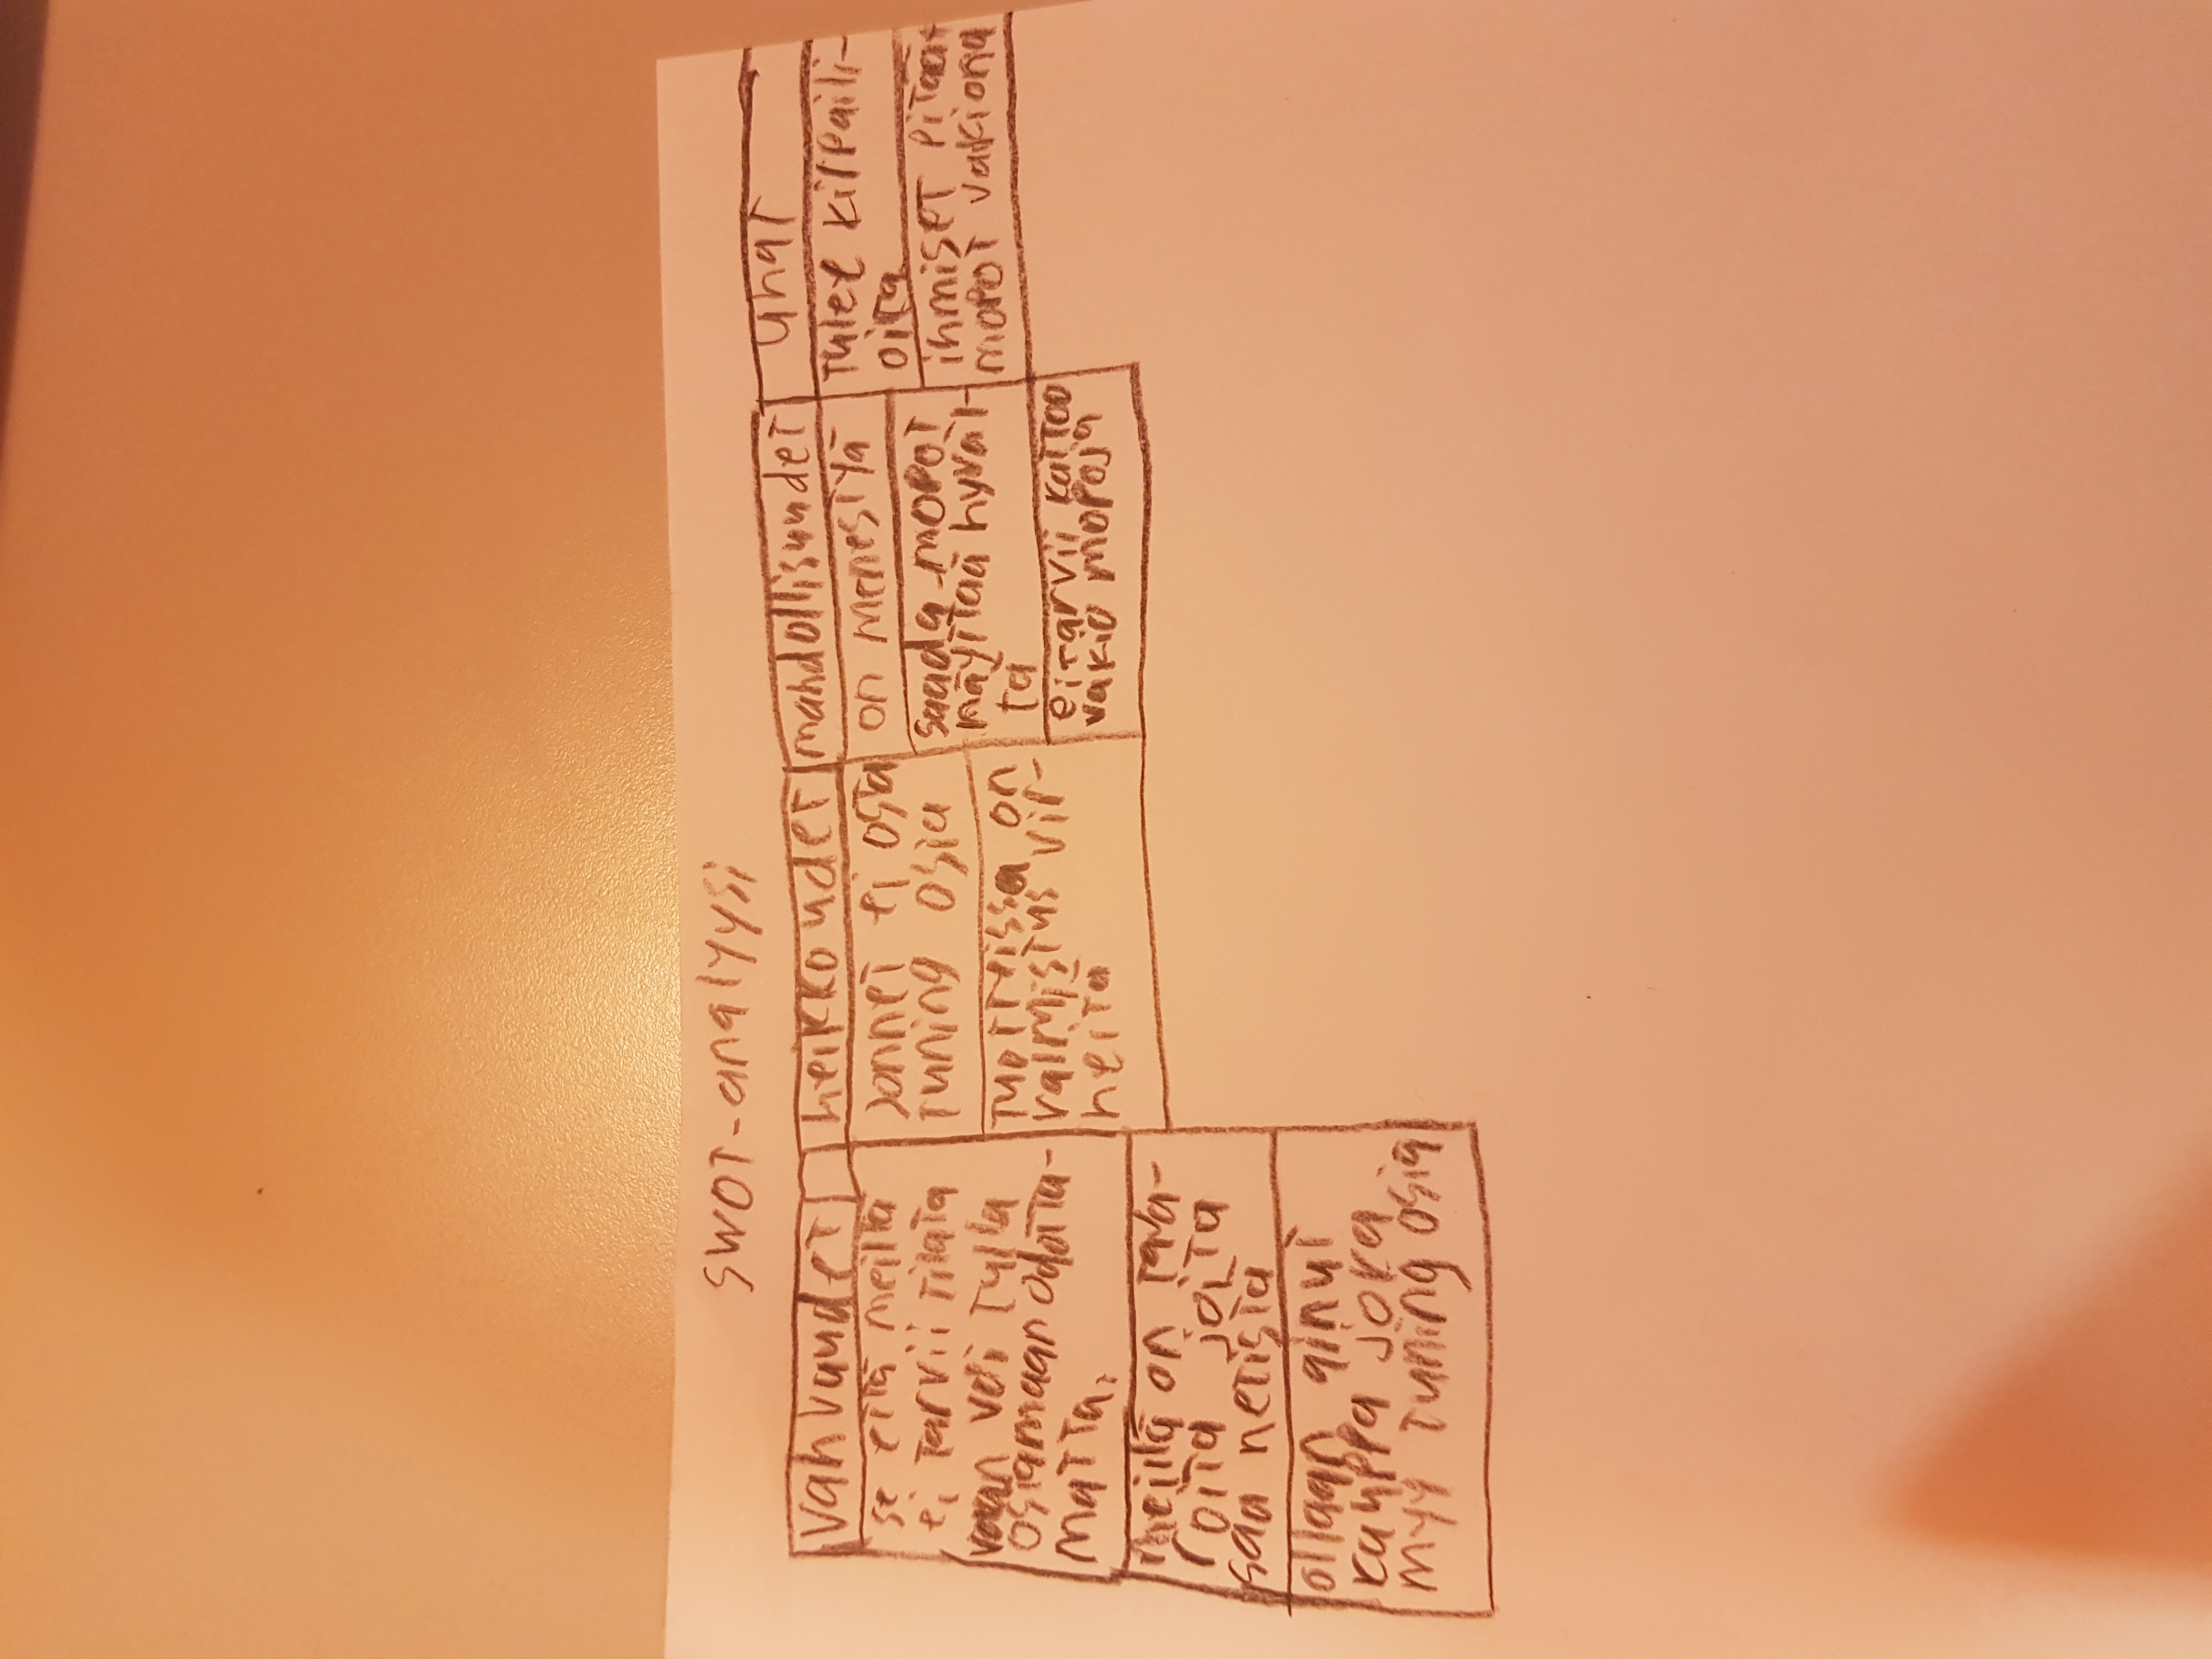 SWOT-analyysi
vahvuudet
se että meiltä
ei tarvii tilata
vaan voi tulla
ostamaan odotta-
matta.
meillä on tava-
roita joita
saa netistä
ollaan ainut
kauppa joka
myy tuning osia
heikkoudet
jonnet ei osta
tuning osia
tuotteissa on
valmistus vir-
heitä
mahdollisuudet
on menestyä
saada mopot
näyttää hyväl-
tä
ei tarvii kattoo
vakio mopoja
uhat
tulee kilpaili-
oita
ihmiset pitää
mopot vakiona